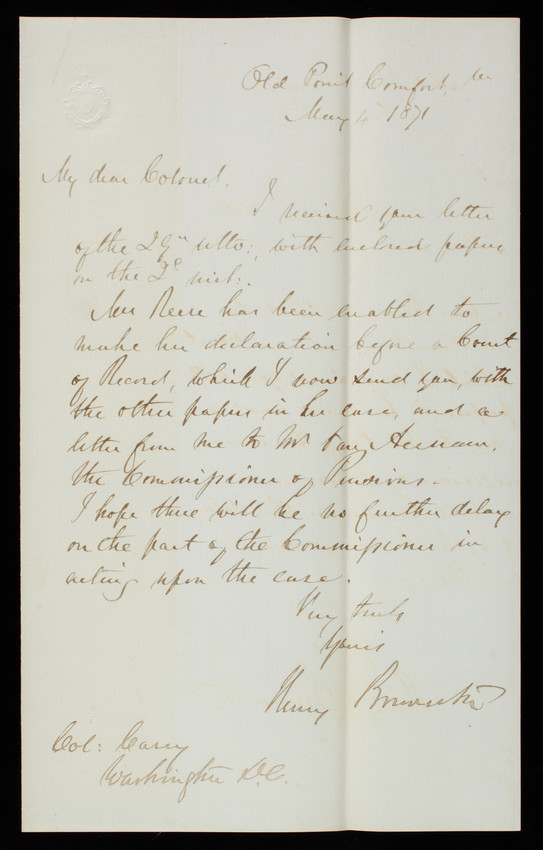 Old Point Comfort, Va
May 4 1871
My dear Colonel,
I received your letter
of the 29th ulto:, with enclosed papers,
on the 2d inst:.
Mrs Reese has been enabled to
make her declaration before a Court
of Record, which I now send you, with
the other papers in her case, and a
letter from me to Mr Van Aernam,
the Commissioner of Pensions.
I hope there will be no further delay
on the part of the Commissioner in
acting upon the case.
Very truly
Yours
Henry Brewerton
Col: Casey
Washington D.C.